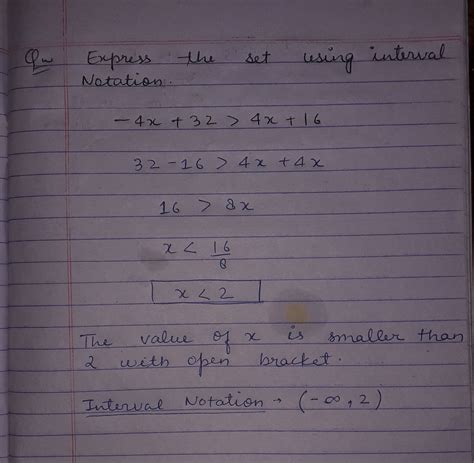 Qu Express the set using interval
Notation.
-4x + 32 > 4x + 16
32 - 16 > 4x + 4x
16 > 8x
x < 16/8
x < 2
The value of x is smaller than
2 with open bracket.
Interval Notation → (-∞, 2)